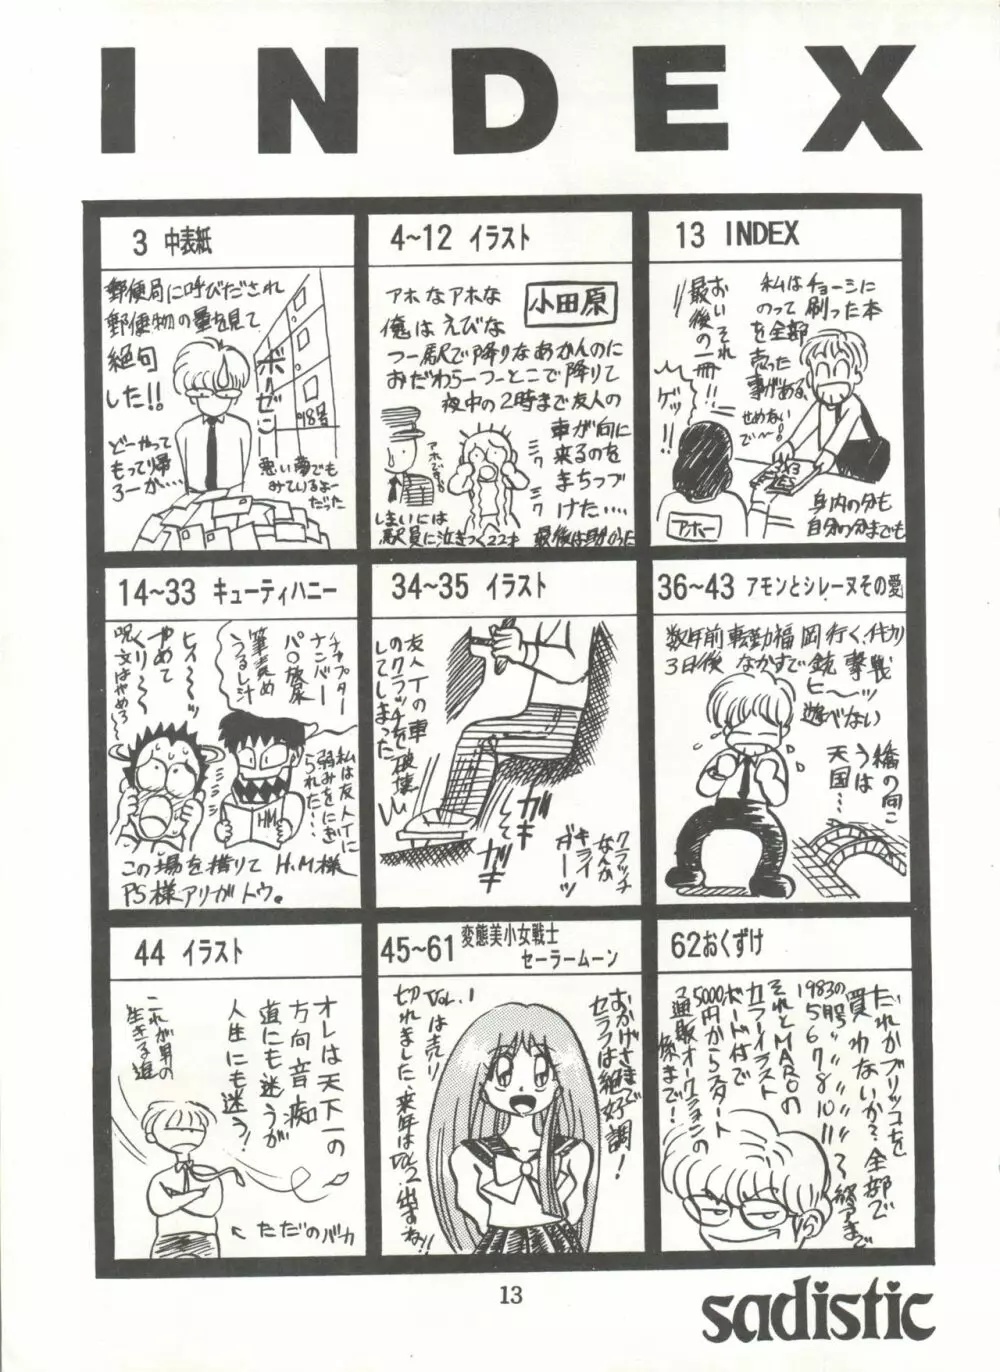 INDEX
3 中表紙
郵便局に呼びだされ
郵便物の量を見て
絶句
した!!
ボーゼン
98号
どーやって
もって帰
ろーか……
悪い夢でも
みているよー
だった
4~12 イラスト
小田原
アホなアホな
俺はえびな
つー駅で降りなあかんのに
おだわらーつーとこで降りて
夜中の2時まで友人の
車が向に
来るのを
まちつづ
けた……
アホです。
ミワ
ミワ
しまいには
駅員に泣きつく22才
13 INDEX
私はチョーシに
のって刷った本
を全部
売った
事がある、
せめないで~!
おいそれ
最後の一冊!!
ゲッ!!
アホー
身内の分も
自分の分までも
14~33 キューティハニー
チャプター
ナンバー
パ○放尿
筆責め
うるし汁
ヒィ~~ッ
やめて
くり~~
呪文はやめろ~
私は友人Iに
弱みをにぎ
られた……
HM
この場を借りて H.M様
PS様アリガトウ。
34~35 イラスト
友人Tの車
のクラッチを破壊
してしまった
ガキ
して
ガキ
クラッチ
なんか
キライ
ガーッ
36~43 アモンとシレーヌその愛
数年前転勤福岡行く、
3日後 なかすで銃撃戦
ヒ~ッ
遊べない
橋の向こ
うは
天国…
44 イラスト
オレは天下一の
方向音痴
道にも迷うが
人生にも迷う!
これが男の
生きる道
←ただのバカ
45~61 変態美小女戦士
セーラームーン
おかげさまで
セララは絶好調!
VOL.1は売り
切れました、来年はVOL2.出すね!!
62おくずけ
だれかブリッコを
買わないか?全部で
1983の
5月号 6〃 7〃 8〃 10〃 11〃
それとMAROの
カラーイラスト
ボード付で
5000円からスタート
通販オークションの
係まで!
13
sadistic